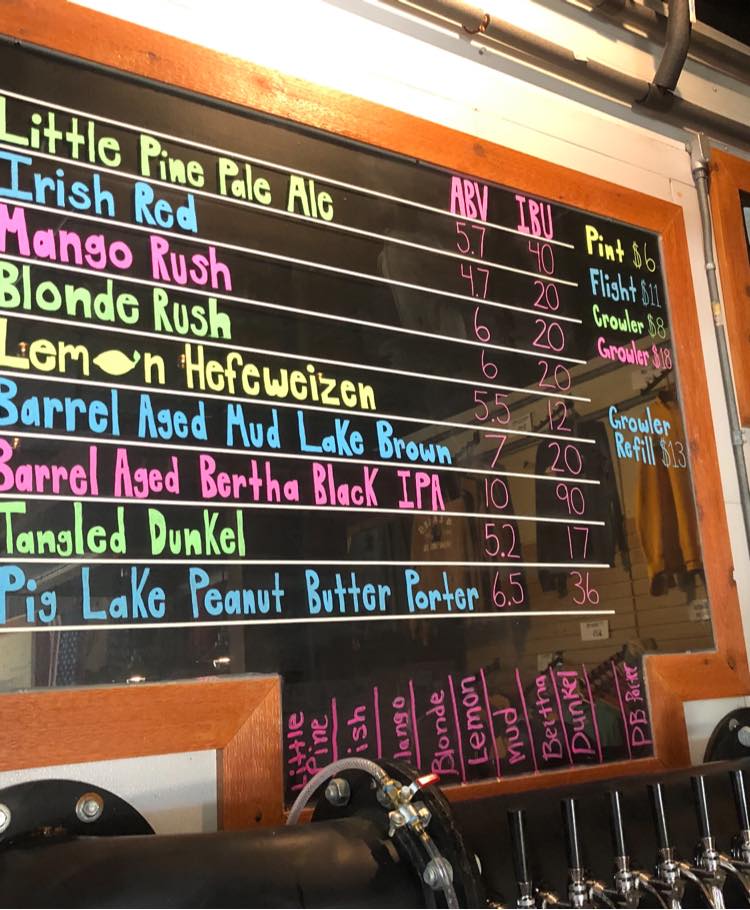 ABV IBU
Little Pine Pale Ale 5.7 40
Irish Red 4.7 20
Mango Rush 6 20
Blonde Rush 6 20
Lemon Hefeweizen 5.5 12
Barrel Aged Mud Lake Brown 7 20
Barrel Aged Bertha Black IPA 10 90
Tangled Dunkel 5.2 17
Pig Lake Peanut Butter Porter 6.5 36
Pint $6
Flight $11
Crowler $8
Growler $18
Growler
Refill $13
Little
Pine
ish
ango
Blonde
Lemon
Mud
Bertha
Dunkel
PB Porter